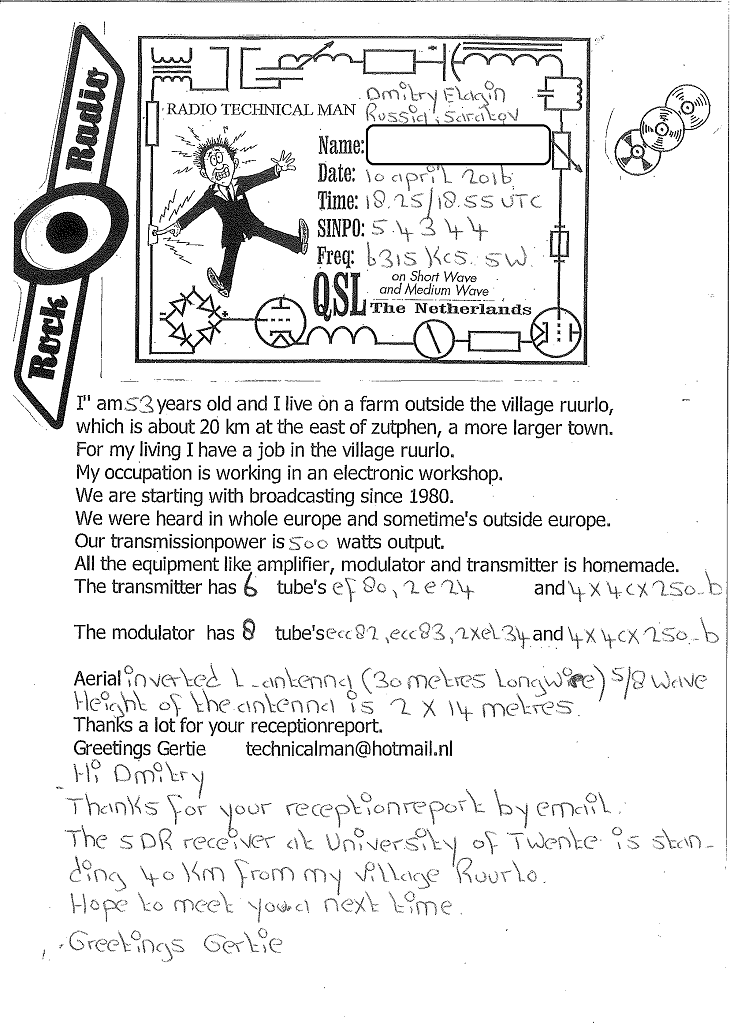 Rock Radio
Dmitry Elagin
RADIO TECHNICAL MAN Russia, Saratov
Name:
Date: 10 april 2016
Time: 18.25/18.55 UTC
SINPO: 5 4 3 4 4
Freq: 6315 Kcs. SW.
QSL on Short Wave
and Medium Wave
The Netherlands
I" am 53 years old and I live on a farm outside the village ruurlo,
which is about 20 km at the east of zutphen, a more larger town.
For my living I have a job in the village ruurlo.
My occupation is working in an electronic workshop.
We are starting with broadcasting since 1980.
We were heard in whole europe and sometime's outside europe.
Our transmissionpower is 500 watts output.
All the equipment like amplifier, modulator and transmitter is homemade.
The transmitter has 6 tube's ef 80, 2 e 24 and 4 x 4cx 250-b
The modulator has 8 tube's ecc82, ecc83, 2xel34 and 4 x 4cx 250-b
Aerial inverted L-antenna (30 metres longwire) 5/8 wave
Height of the antenna is 2 x 14 metres.
Thanks a lot for your receptionreport.
Greetings Gertie technicalman@hotmail.nl
Hi Dmitry
Thanks for your receptionreport by email.
The SDR receiver at University of Twente is stan-
ding 40 Km from my village Ruurlo.
Hope to meet you a next time.
Greetings Gertie